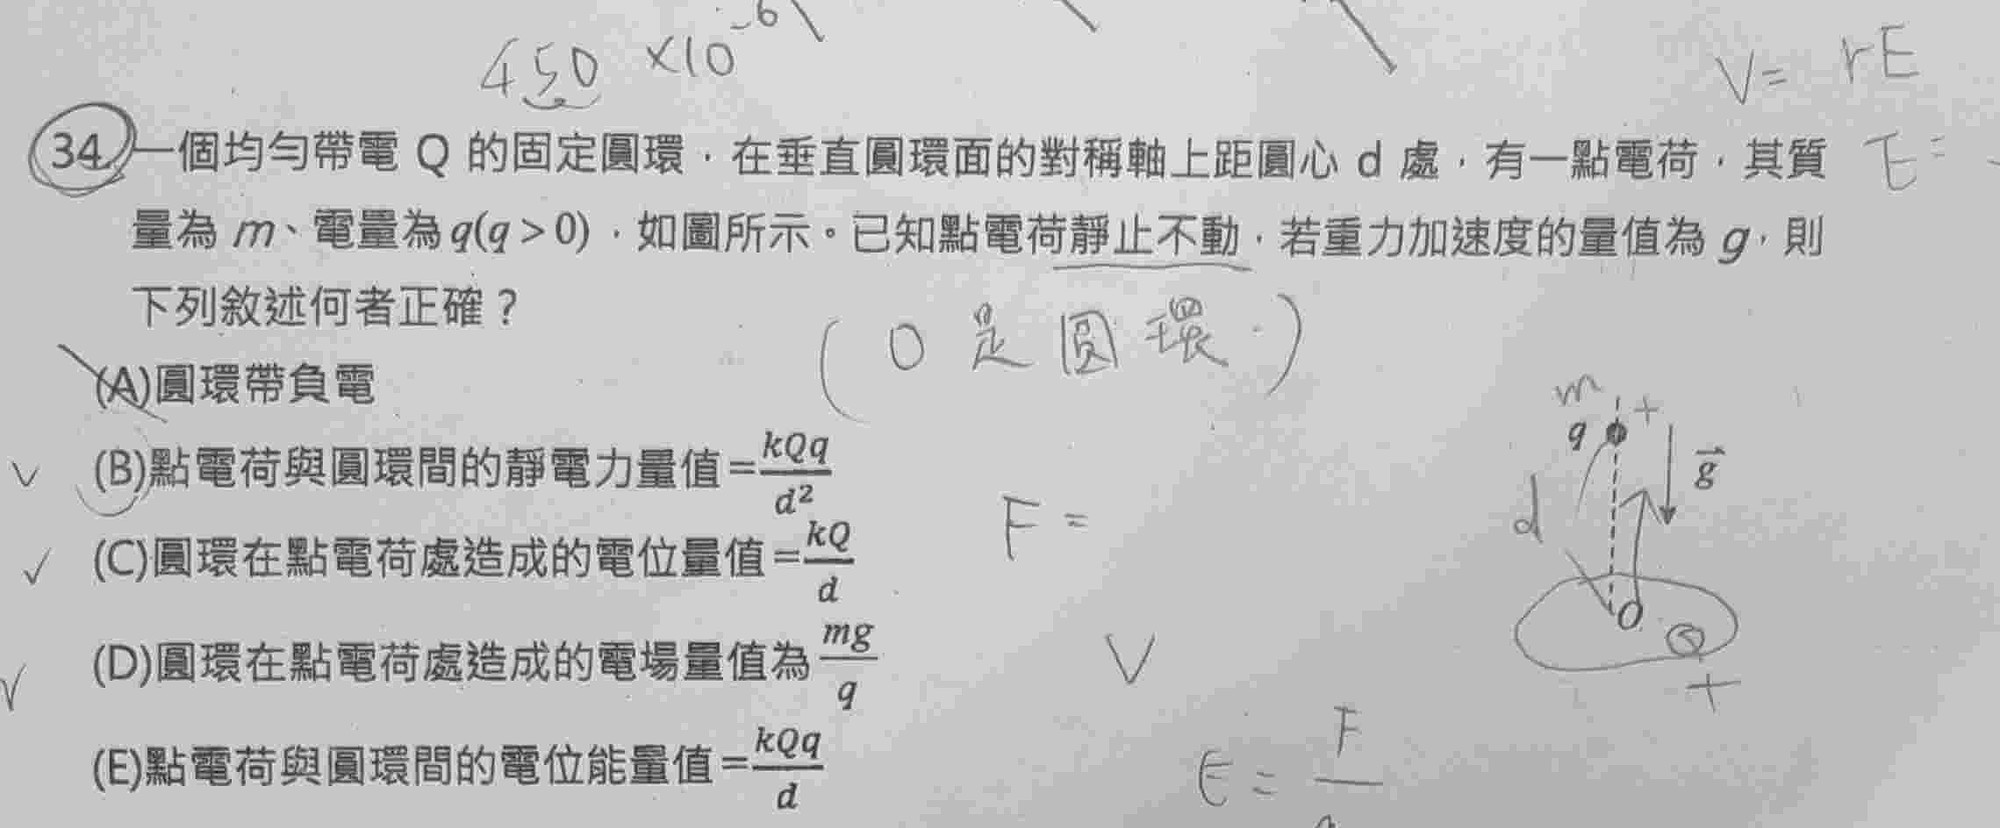 450 ×10⁻⁶
V= rE
34. 一個均勻帶電 Q 的固定圓環，在垂直圓環面的對稱軸上距圓心 d 處，有一點電荷，其質
E=
量為 m、電量為 q(q > 0)，如圖所示。已知點電荷靜止不動，若重力加速度的量值為 g，則
下列敘述何者正確？
(O 是圓環)
(A)圓環帶負電
(B)點電荷與圓環間的靜電力量值=kQq/d²
(C)圓環在點電荷處造成的電位量值=kQ/d
(D)圓環在點電荷處造成的電場量值為 mg/q
(E)點電荷與圓環間的電位能量值=kQq/d
F =
V
E = F
m
+
q
g
d
O
Q
+